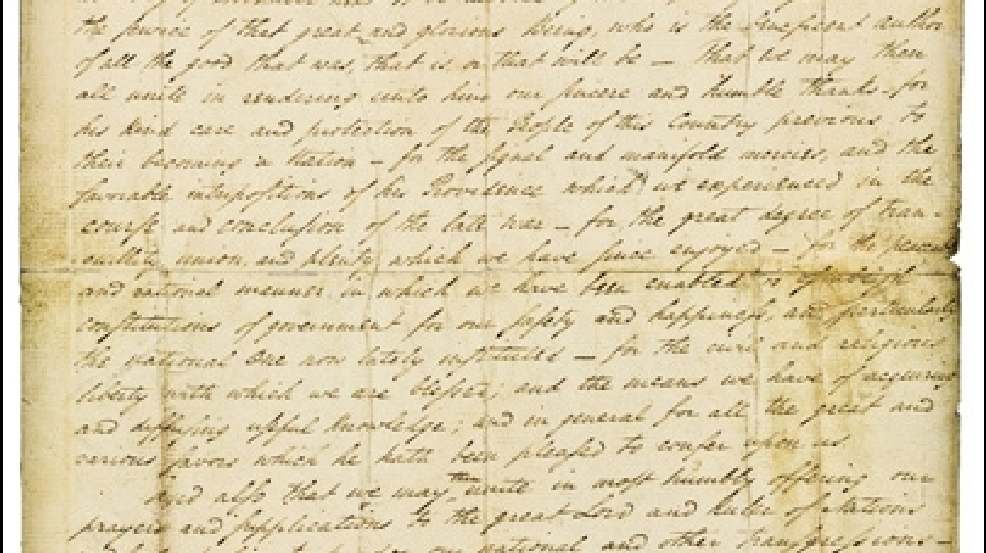 the service of that great and glorious Being, who is the beneficent author
of all the good that was, that is, or that will be – that we may then
all unite in rendering unto him our sincere and humble thanks – for
his kind care and protection of the People of this Country previous to
their becoming a Nation – for the signal and manifold mercies, and the
favorable interpositions of his Providence which we experienced in the
course and conclusion of the late war – for the great degree of tran-
quillity, union, and plenty, which we have since enjoyed – for the peaceable
and rational manner in which we have been enabled to establish
constitutions of government for our safety and happiness, and particularly
the national One now lately instituted – for the civil and religious
liberty with which we are blessed; and the means we have of acquiring
and diffusing useful knowledge; and in general for all the great and
various favors which he hath been pleased to confer upon us
And also that we may then unite in most humbly offering our
prayers and supplications to the great Lord and Ruler of Nations
our national and other transgressions –